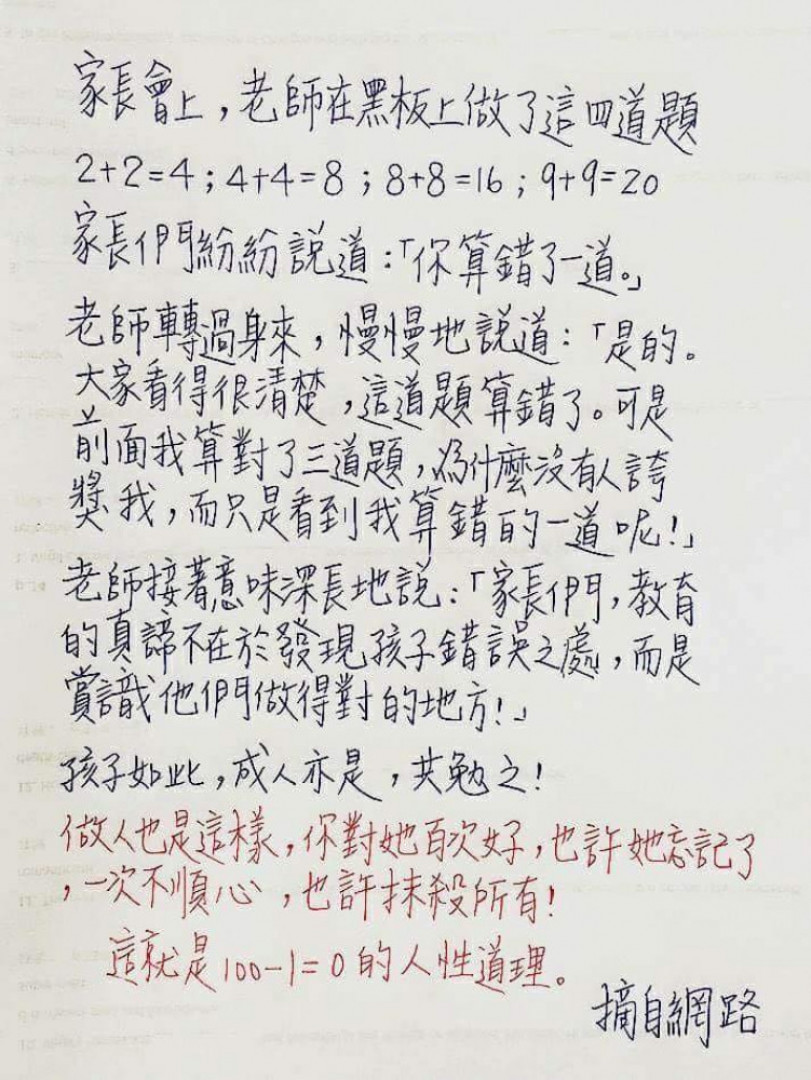 家長會上，老師在黑板上做了這四道題
2+2=4；4+4=8；8+8=16；9+9=20
家長們紛紛說道：「你算錯了一道。」
老師轉過身來，慢慢地說道：「是的。
大家看得很清楚，這道題算錯了。可是
前面我算對了三道題，為什麼沒有人誇
獎我，而只是看到我算錯的一道呢！」
老師接著意味深長地說：「家長們，教育
的真諦不在於發現孩子錯誤之處，而是
賞識他們做得對的地方！」
孩子如此，成人亦是，共勉之！
做人也是這樣，你對她百次好，也許她忘記了
，一次不順心，也許抹殺所有！
這就是100-1=0的人性道理。
摘自網路